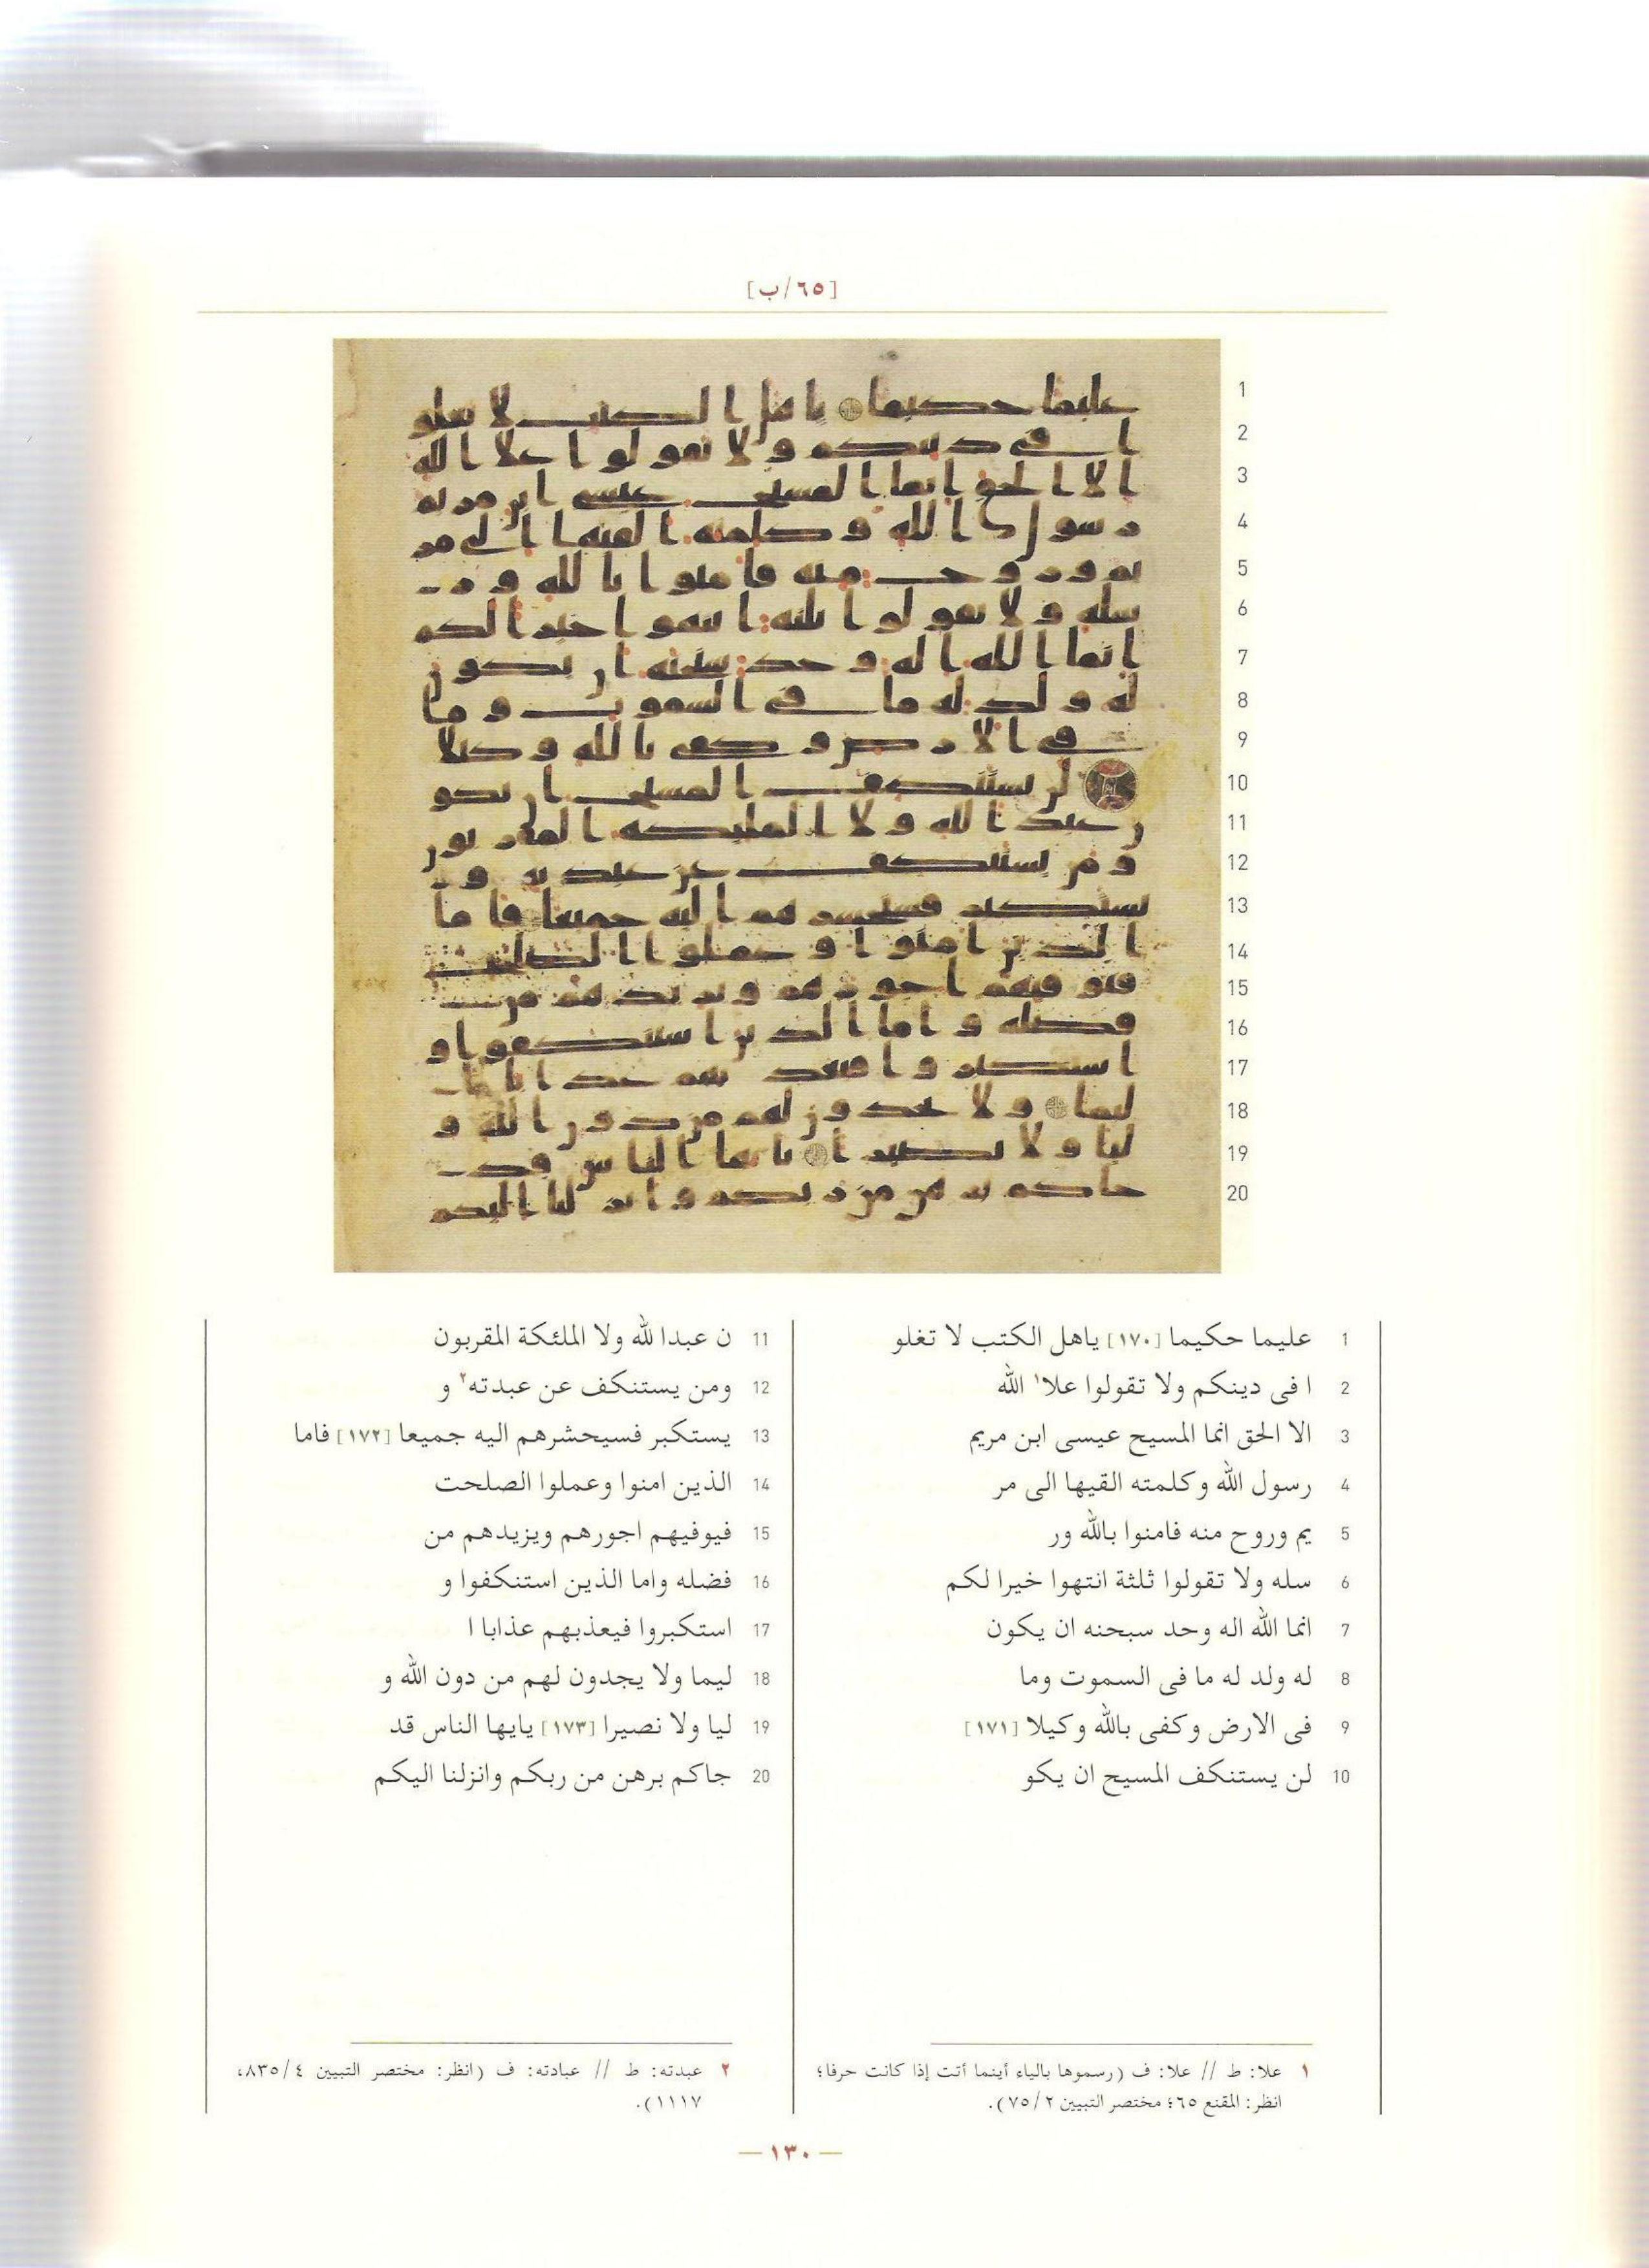 [٦٥/ب]
1
2
3
4
5
6
7
8
9
10
11
12
13
14
15
16
17
18
19
20
1 عليما حكيما [١٧٠] ياهل الكتب لا تغلو
2 ا فى دينكم ولا تقولوا علا١ الله
3 الا الحق انما المسيح عيسى ابن مريم
4 رسول الله وكلمته القيها الى مر
5 يم وروح منه فامنوا بالله ور
6 سله ولا تقولوا ثلثة انتهوا خيرا لكم
7 انما الله اله وحد سبحنه ان يكون
8 له ولد له ما فى السموت وما
9 فى الارض وكفى بالله وكيلا [١٧١]
10 لن يستنكف المسيح ان يكو
11 ن عبدا لله ولا الملئكة المقربون
12 ومن يستنكف عن عبدته٢ و
13 يستكبر فسيحشرهم اليه جميعا [١٧٢] فاما
14 الذين امنوا وعملوا الصلحت
15 فيوفيهم اجورهم ويزيدهم من
16 فضله واما الذين استنكفوا و
17 استكبروا فيعذبهم عذابا ا
18 ليما ولا يجدون لهم من دون الله و
19 ليا ولا نصيرا [١٧٣] يايها الناس قد
20 جاكم برهن من ربكم وانزلنا اليكم
١ علا: ط // علا: ف (رسموها بالياء أينما أتت إذا كانت حرفا؛
انظر: المقنع ٦٥؛ مختصر التبيين ٧٥/٢).
٢ عبدته: ط // عبادته: ف (انظر: مختصر التبيين ٨٣٥/٤،
١١١٧).
— ١٣٠ —